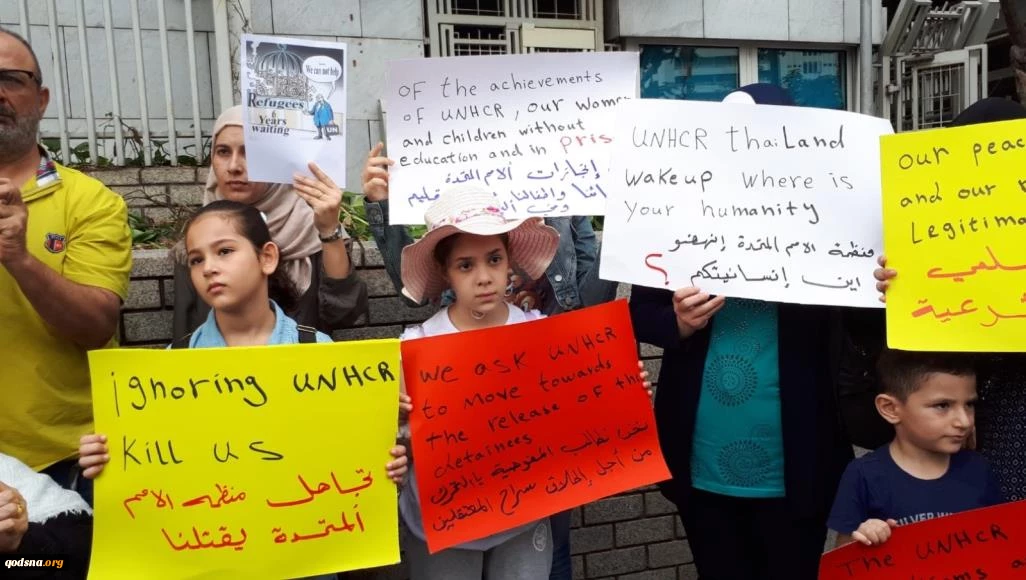 We can not help
Refugees
6
Years
waiting
UN
OF the achievements
OF UNHCR, our women
and children without
education and in pris
إنجازات الامم المتحدة
UNHCR thaiLand
wakeup where is
your humanity
منظمة الامم المتحدة إنهضو
اين إنسانيتكم ؟
our peac
and our r
Legitima
سلمي
رعية
ignoring UNHCR
Kill us
تجاهل منظمه الامم
ألمتحدة يقتلنا
we ask UNHCR
to move towards
the release of the
detainees
نحن نطالب المفوضية بالتحرك
من أجل إطلاق سراح المعتقلين
SILVER
The UNHCR
qodsna.org